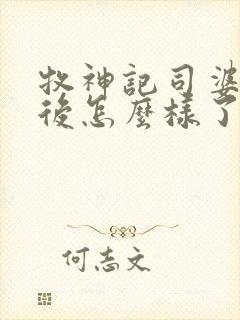 牧神記司婆
後怎麼樣了
何志文